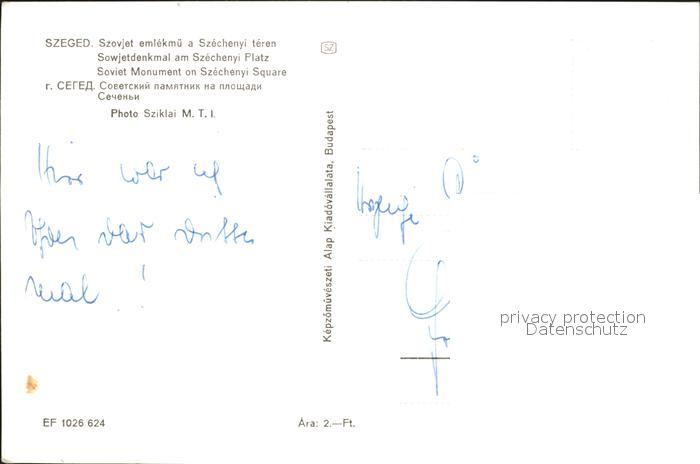 SZEGED. Szovjet emlékmű a Széchenyi téren
Sowjetdenkmal am Széchenyi Platz
Soviet Monument on Széchenyi Square
г. СЕГЕД. Советский памятник на площади
Сеченьи
Photo Sziklai M. T. I.
SZ
Képzőművészeti Alap Kiadóvállalata, Budapest
Hier war ich
das dritte
mal !
privacy protection
Datenschutz
EF 1026 624
Ára: 2.—Ft.